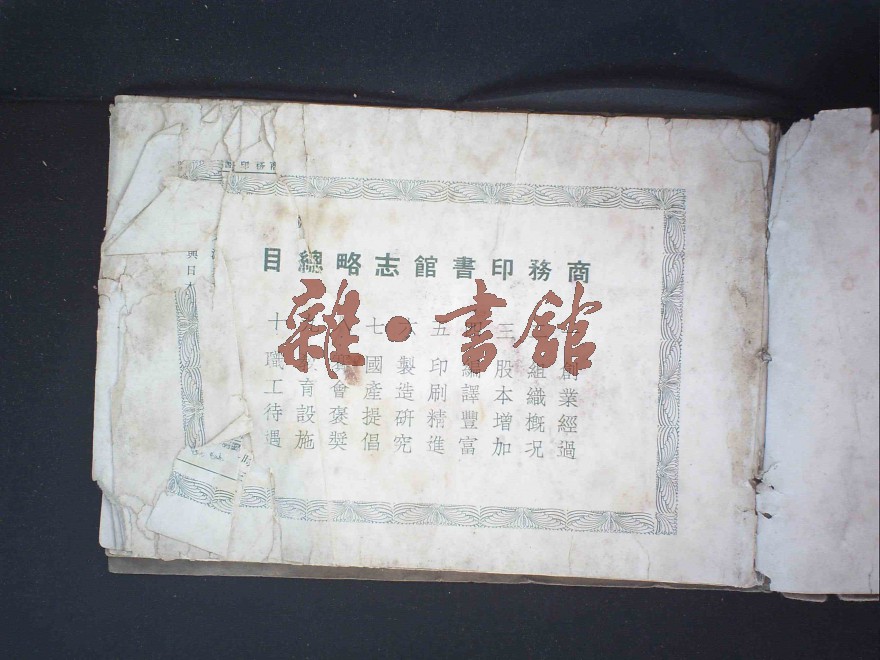 商務印書館志略總目
創業經過
組織概况
三 股本增加
編譯豐富
五 印刷精進
六 製造研究
七 國產提倡
八 會褒獎
九 教育設施
十 職工待遇
雜·書館